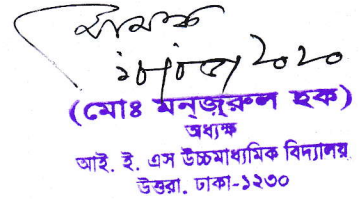 (মোঃ মন্জুরুল হক)
অধ্যক্ষ
আই. ই. এস উচ্চমাধ্যমিক বিদ্যালয়
উত্তরা. ঢাকা-১২৩০